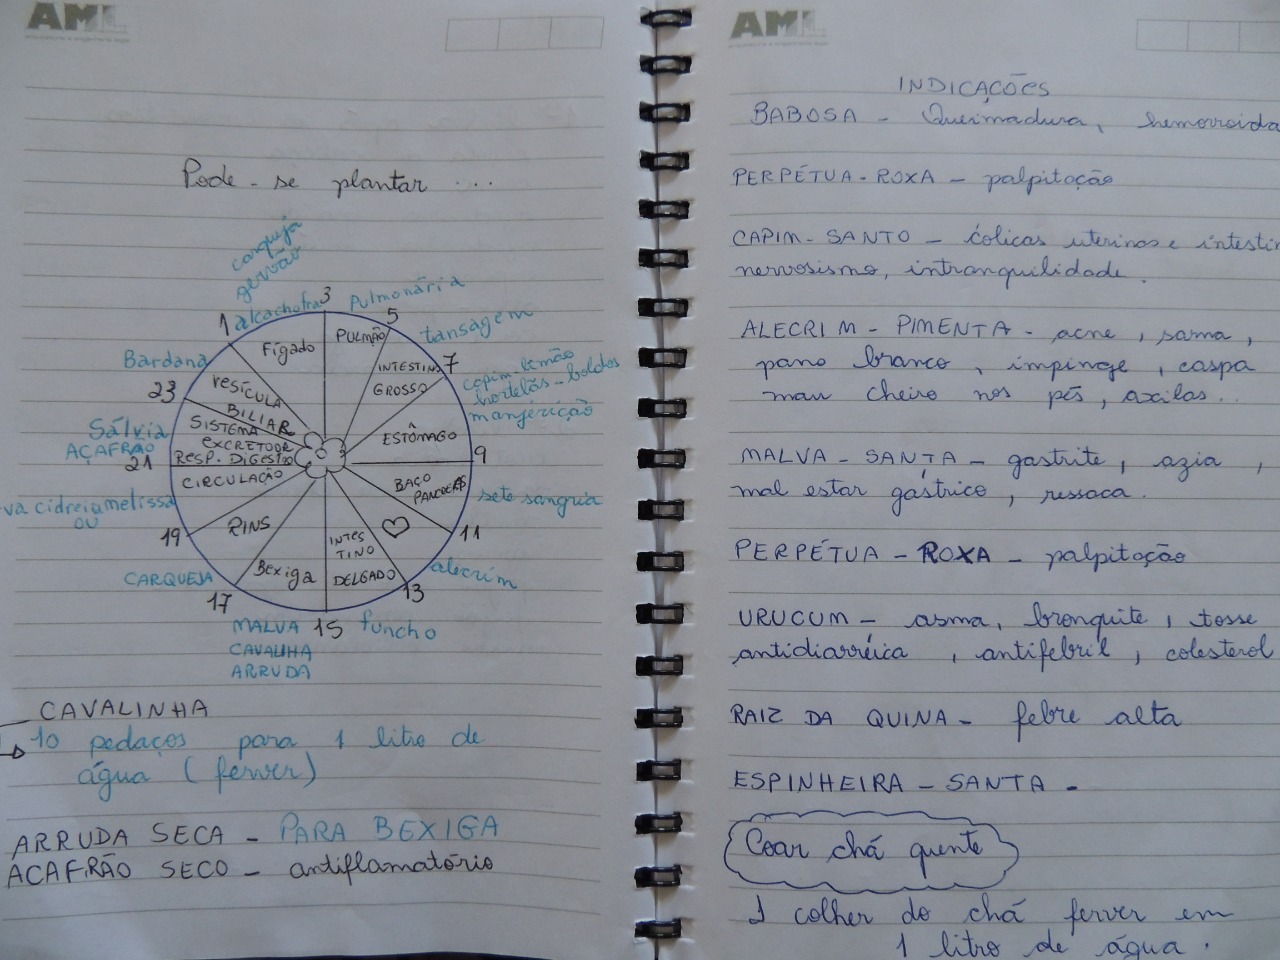 AML
Pode-se plantar ...
carqueja
gervão
alcachofra
3
Pulmonária
1
5
tansagem
Fígado
PULMÃO
Bardana
INTESTINO
7
GROSSO
capim-limão
hortelãs-boldos
manjericão
23
VESÍCULA
BILIAR
Sálvia
AÇAFRÃO
21
SISTEMA
EXCRETOR
RESP. DIGESTÃO
CIRCULAÇÃO
ESTÔMAGO
9
BAÇO
PANCREAS
sete sangria
va cidreia melissa
OU
19
RINS
INTES
TINO
DELGADO
11
alecrim
CARQUEJA
Bexiga
13
17
MALVA
CAVALIHA
ARRUDA
15
funcho
CAVALINHA
10 pedaços para 1 litro de
água (ferver)
ARRUDA SECA - PARA BEXIGA
ACAFRÃO SECO - antiflamatório
AML
INDICAÇÕES
BABOSA - Queimadura, hemorroida
PERPÉTUA-ROXA - palpitação
CAPIM-SANTO - cólicas uterinas e intestin
nervosismo, intranquilidade.
ALECRIM-PIMENTA - acne, sarna,
pano branco, impinge, caspa
mau cheiro nos pés, axilas...
MALVA-SANTA - gastrite, azia,
mal estar gástrico, ressaca.
PERPÉTUA-ROXA - palpitação
URUCUM - asma, bronquite, tosse
antidiarréica, antifebril, colesterol
RAIZ DA QUINA - febre alta
ESPINHEIRA-SANTA -
Coar chá quente
1 colher do chá ferver em
1 litro de água.